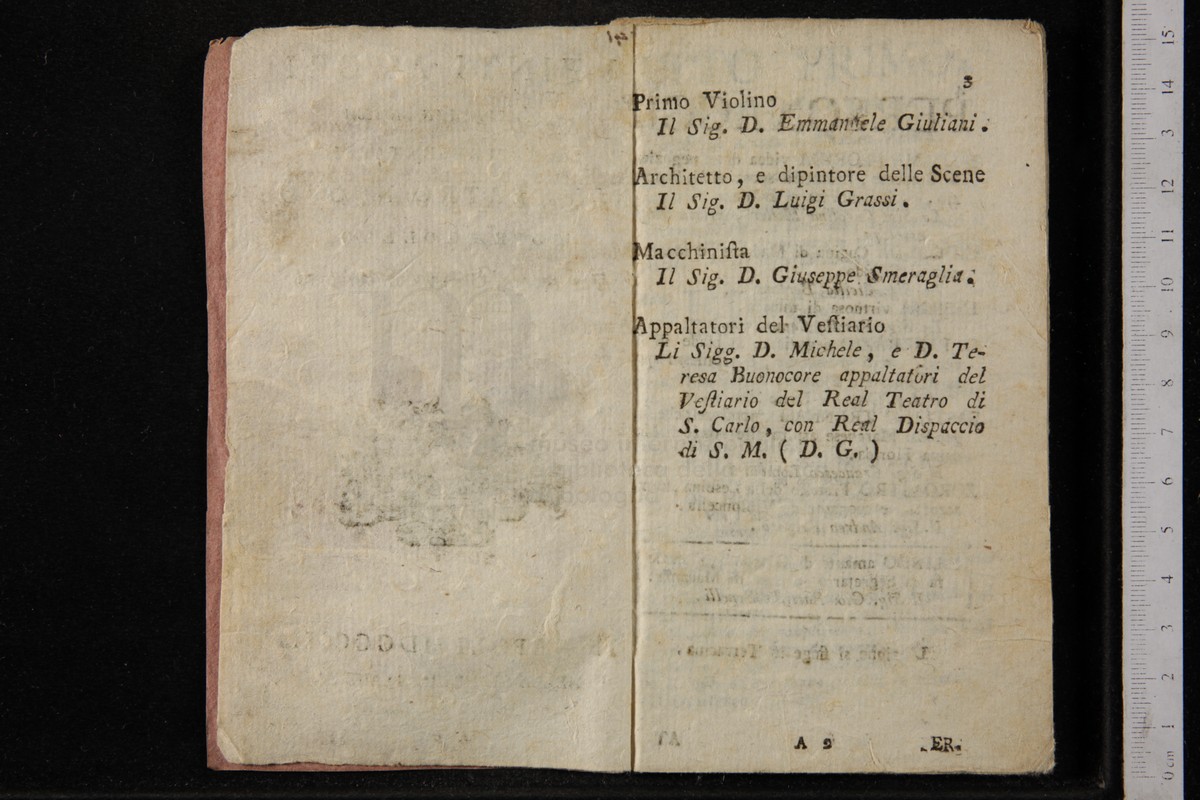 3
Primo Violino
Il Sig. D. Emmanuele Giuliani.
Architetto, e dipintore delle Scene
Il Sig. D. Luigi Grassi.
Macchiniſta
Il Sig. D. Giuseppe Smeraglia.
Appaltatori del Veſtiario
Li Sigg. D. Michele, e D. Te-
resa Buonocore appaltatori del
Veſtiario del Real Teatro di
S. Carlo, con Real Dispaccio
di S. M. ( D. G. )
A 2 ER-